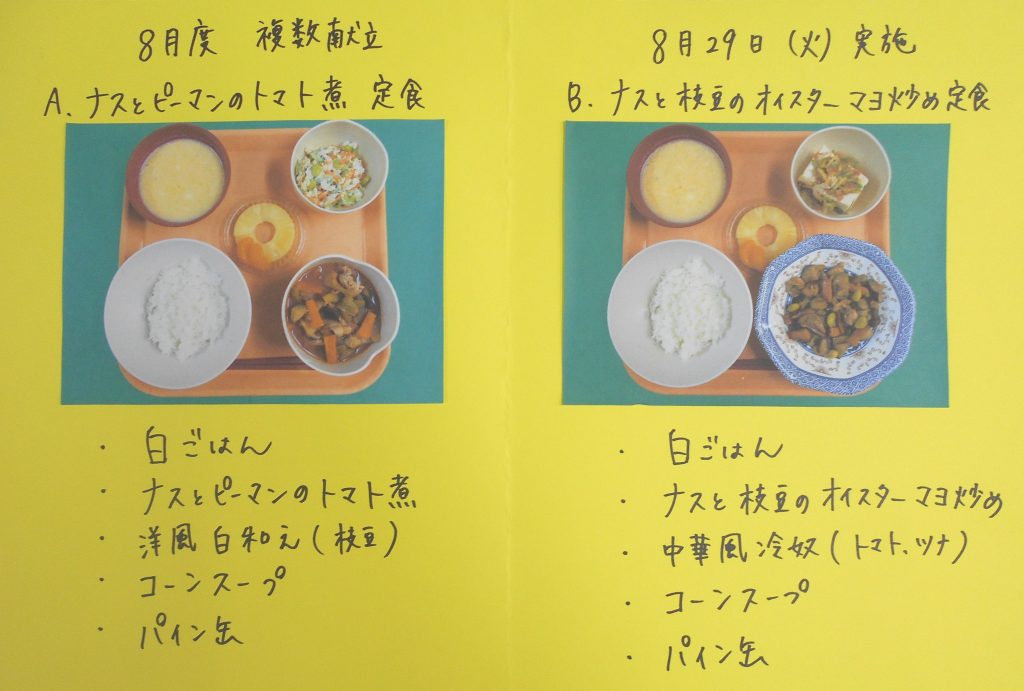 8月度 複数献立
A. ナスとピーマンのトマト煮 定食
・ 白ごはん
・ ナスとピーマンのトマト煮
・ 洋風白和え(枝豆)
・ コーンスープ
・ パイン缶
8月29日(火)実施
B. ナスと枝豆のオイスターマヨ炒め定食
・ 白ごはん
・ ナスと枝豆のオイスターマヨ炒め
・ 中華風冷奴(トマト、ツナ)
・ コーンスープ
・ パイン缶